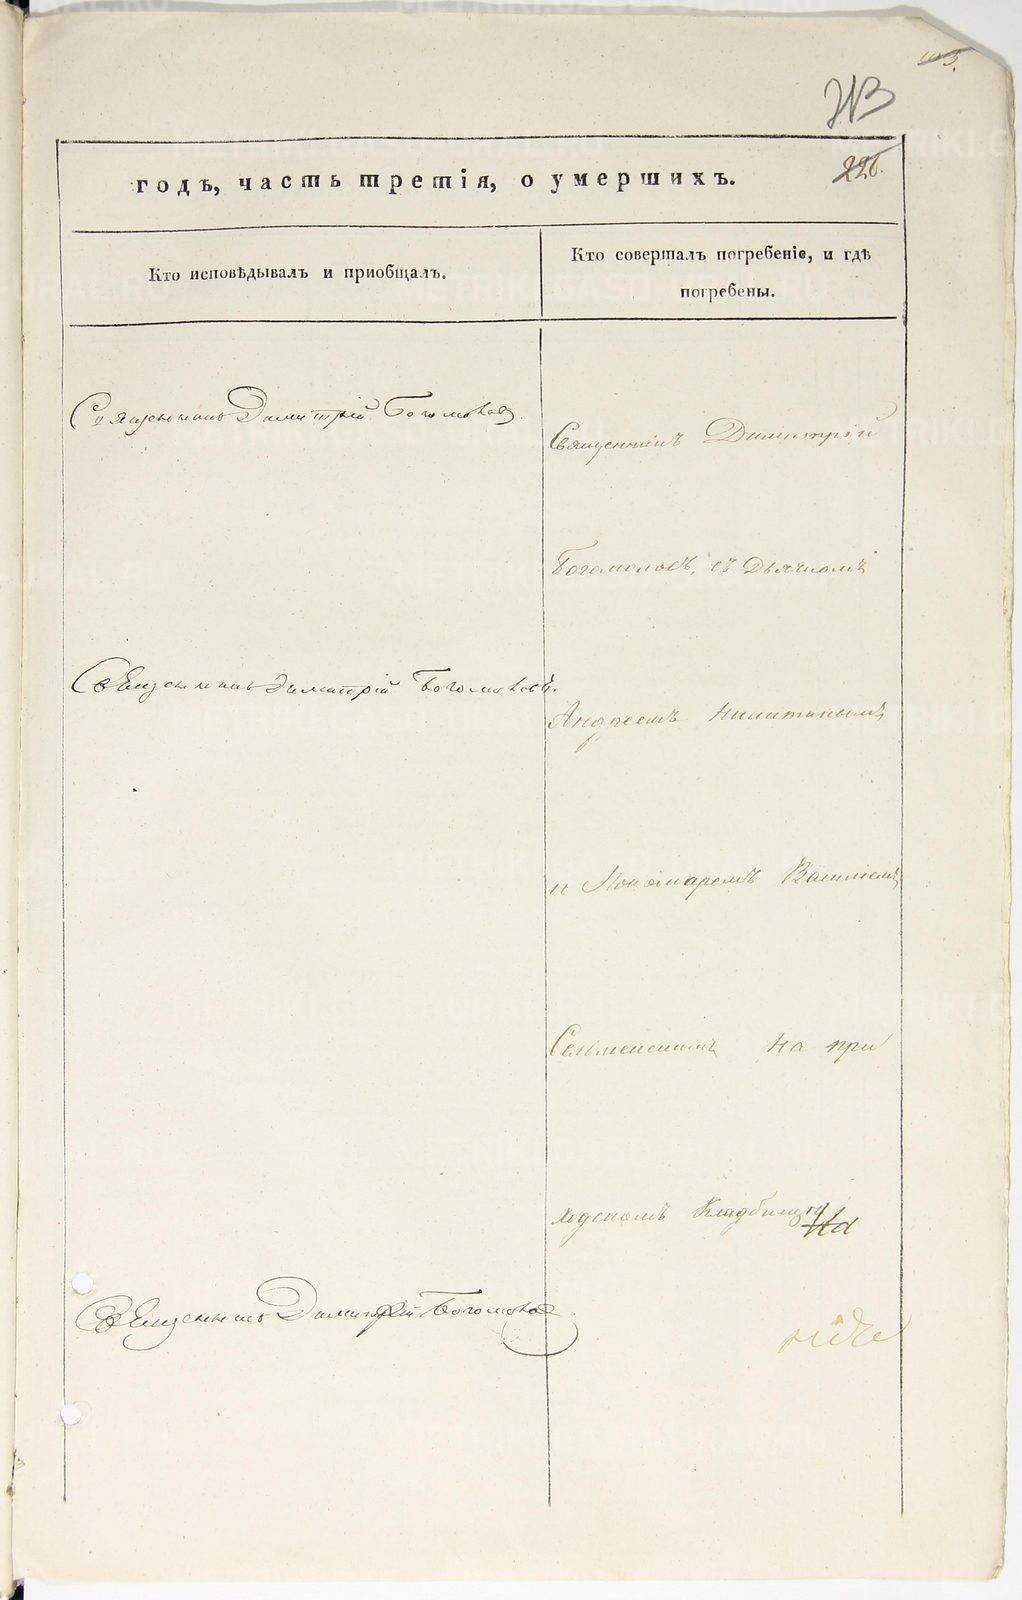 213
226.
годъ, часть третія, о умершихъ.
Кто исповѣдывалъ и приобщалъ.
Кто совершалъ погребеніе, и гдѣ
погребены.
Священникъ Димитрій Богомоловъ.
Священникъ Димитрій
Богомоловъ, съ Дьячкомъ
Священникъ Димитрій Богомоловъ.
Андреемъ Никитинымъ
и Пономаремъ Василіемъ
на при
ходскомъ кладбищѣ
Священникъ Димитрій Богомоловъ
METRIKI.GASO-URAL.RU